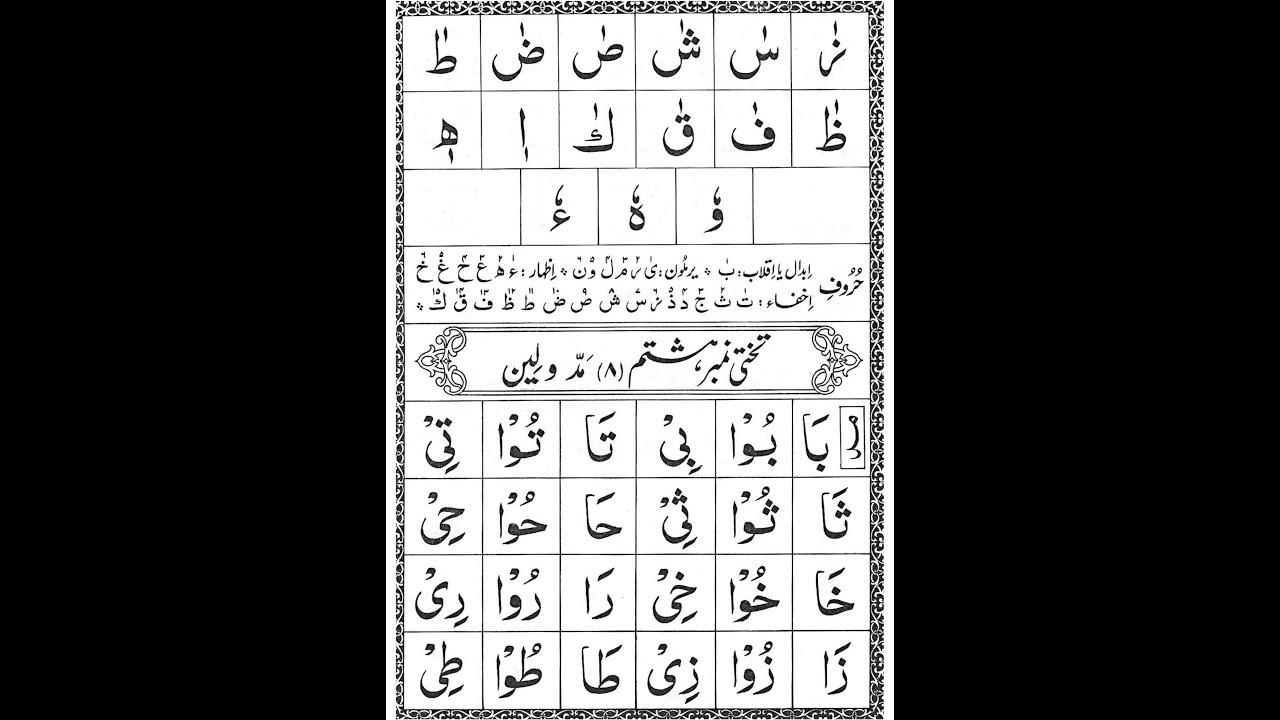 زٰ سٰ شٰ صٰ ضٰ طٰ
ظٰ فٰ قٰ كٰ اٖ هٖ
وٗ هٗ ءٗ
حُرُوفِ ابدال یا اقلاب: ب * یرملون: ی ر م ل و ن * اظہار: ء ھ ع ح غ خ
اخفاء: ت ث ج د ذ ز س ش ص ض ط ظ ف ق ك *
تختی نمبر ہشتم (۸) مَدّ و لِین
مد بَا بُوْا بِیْ تَا تُوْا تِیْ
ثَا ثُوْا ثِیْ حَا حُوْا حِیْ
خَا خُوْا خِیْ رَا رُوْا رِیْ
زَا زُوْا زِیْ طَا طُوْا طِیْ